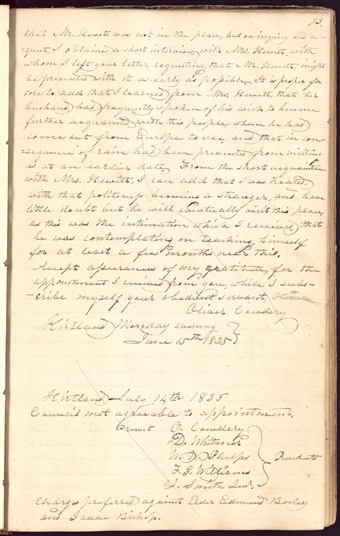 13.
that Mr. Hewitt was not in the place, but on inquiry and re-
quest, I obtained a short interview with Mrs. Hewitt, with
whom I left your letter, requesting that Mr. Hewitt, might
be presented with it as early as possible. It is proper for
me to add that I learned from Mrs. Hewitt, that her
husband, had frequently spoken of his wish to become
further acquainted with this people, whom he had
come out from Europe to see, and that in con-
sequence of rain had been prevented from visiting
us at an earlier date. From the short acquaintance
with Mrs. Hewitt, I can add that I was treated,
with that politeness becoming a stranger, and have
little doubt but he will eventually visit this place,
as this was the intimation which I received, that
he was contemplating on teaching himself
for at least a few months near this.
Accept assurances of my gratitude for the
appointment I received from you, while I subs-
cribe myself your obedient servant,
Oliver Cowdery
Kirtland Monday evening
June 15th 1835
Kirtland July 14th 1835
Council met agreeable to appointment.
Present O. Cowdery
D. Whitmer
W. W. Phelps
F. G. Williams
J. Smith Jun.
Presidents
Charges preferred against Elder Edmund Bosley
and Isaac Bishop.